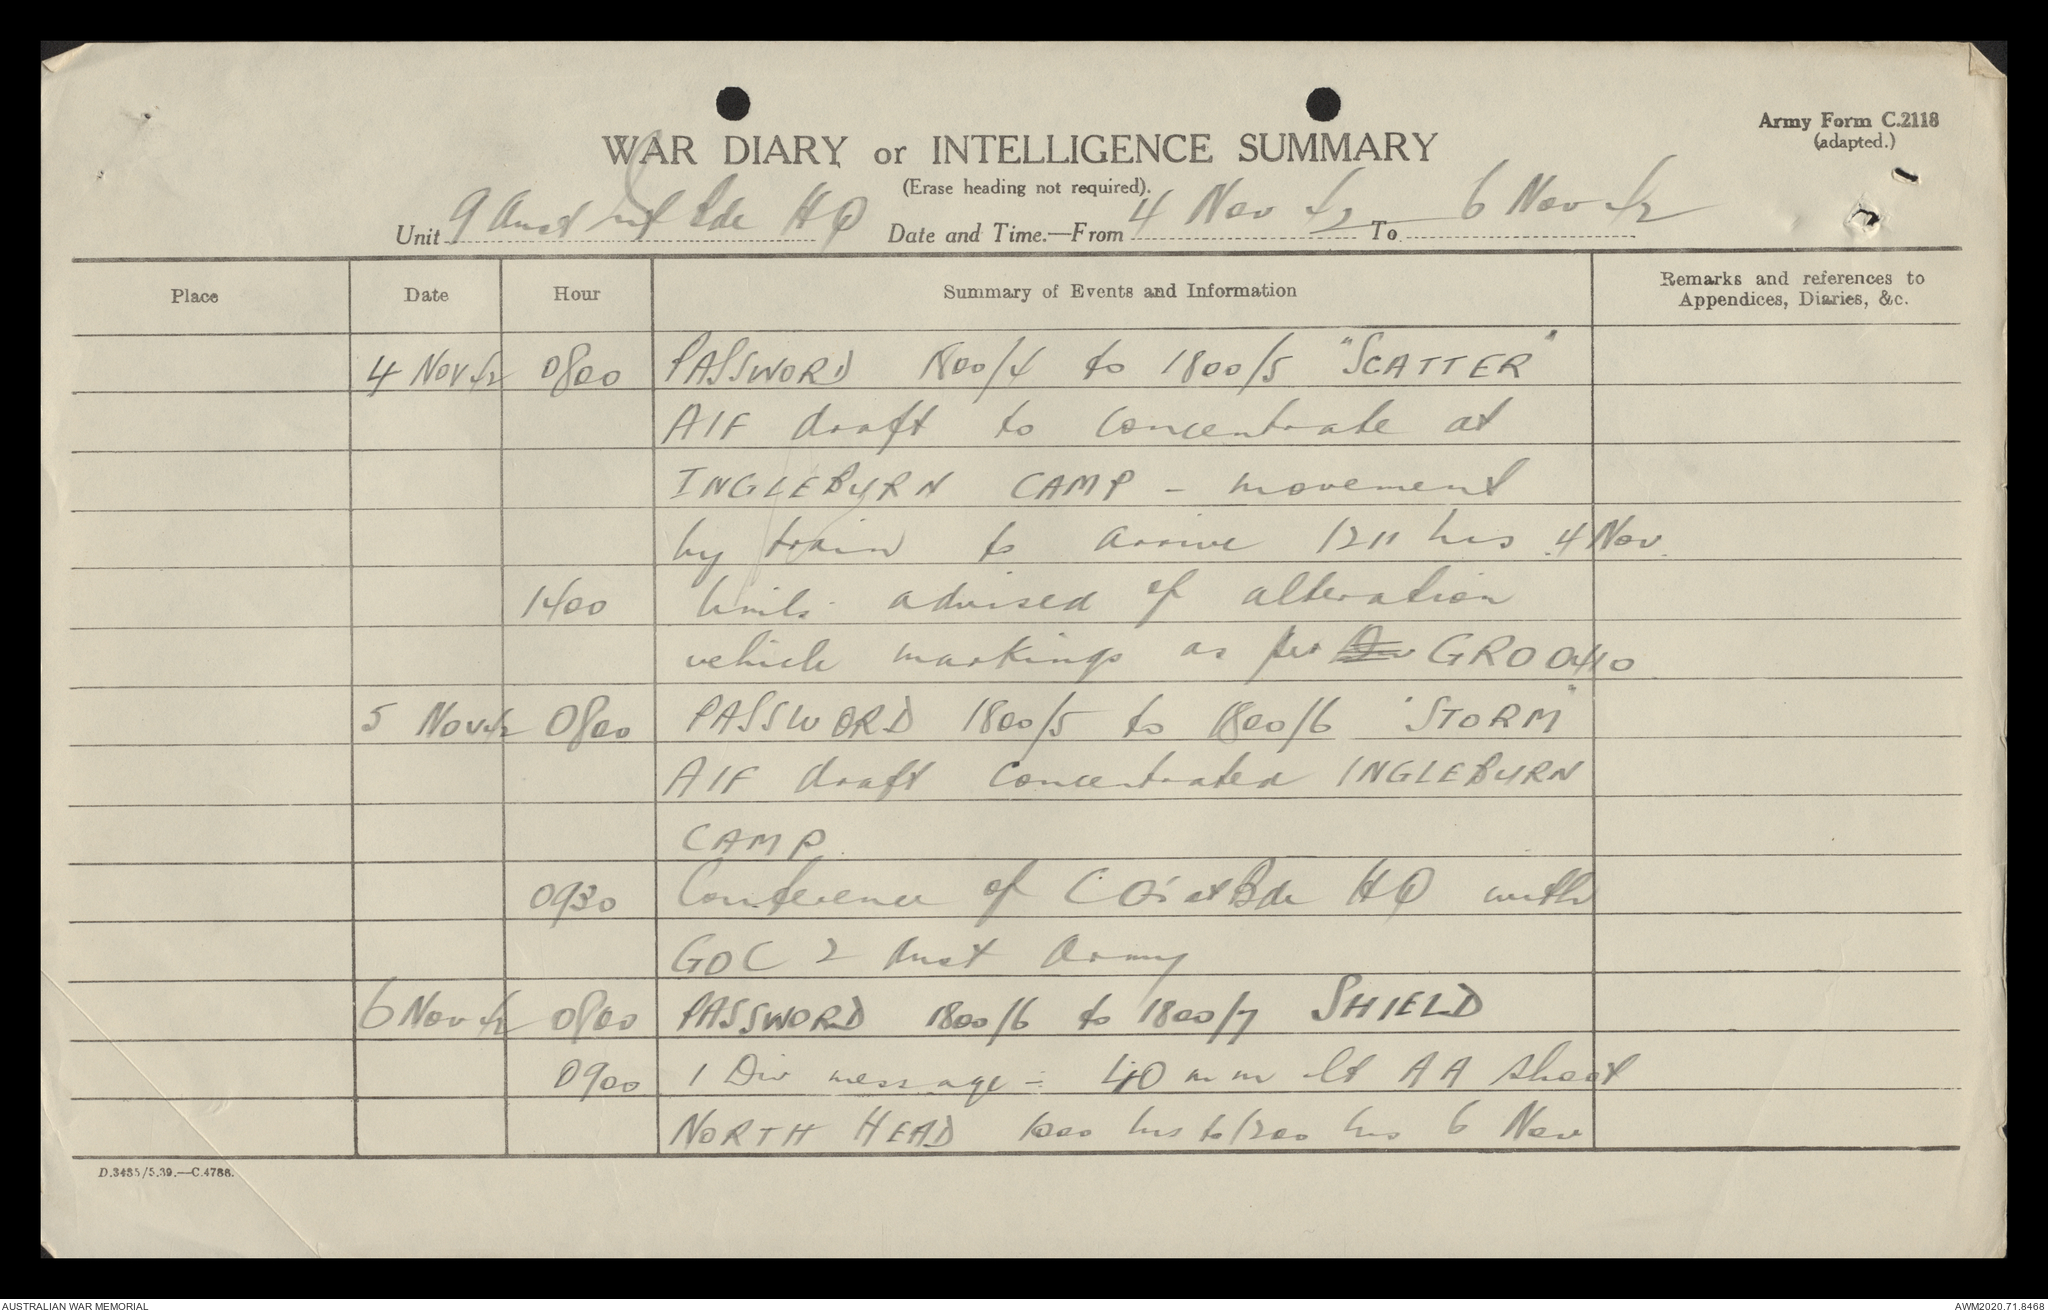 Army Form C.2118
(adapted.)
WAR DIARY or INTELLIGENCE SUMMARY
(Erase heading not required).
Unit 9 Aust Inf Bde HQ Date and Time.—From 4 Nov 42 To 6 Nov 42
Place Date Hour Summary of Events and Information Remarks and references to Appendices, Diaries, &c.
4 Nov 42 0800 PASSWORD 1800/4 to 1800/5 "SCATTER"
AIF draft to concentrate at
INGLEBURN CAMP - movement
by train to arrive 1211 hrs 4 Nov.
1400 Units advised of alteration
vehicle markings as per GRO 0410
5 Nov 42 0800 PASSWORD 1800/5 to 1800/6 "STORM"
AIF draft concentrated INGLEBURN
CAMP.
0930 Conference of COs at Bde HQ with
GOC 2 Aust Army
6 Nov 42 0800 PASSWORD 1800/6 to 1800/7 SHIELD
0900 1 Div message - 40 mm lt AA shoot
NORTH HEAD 1000 hrs to 1200 hrs 6 Nov
D.3485/5.39.—C.4786.
AUSTRALIAN WAR MEMORIAL AWM2020.71.8468